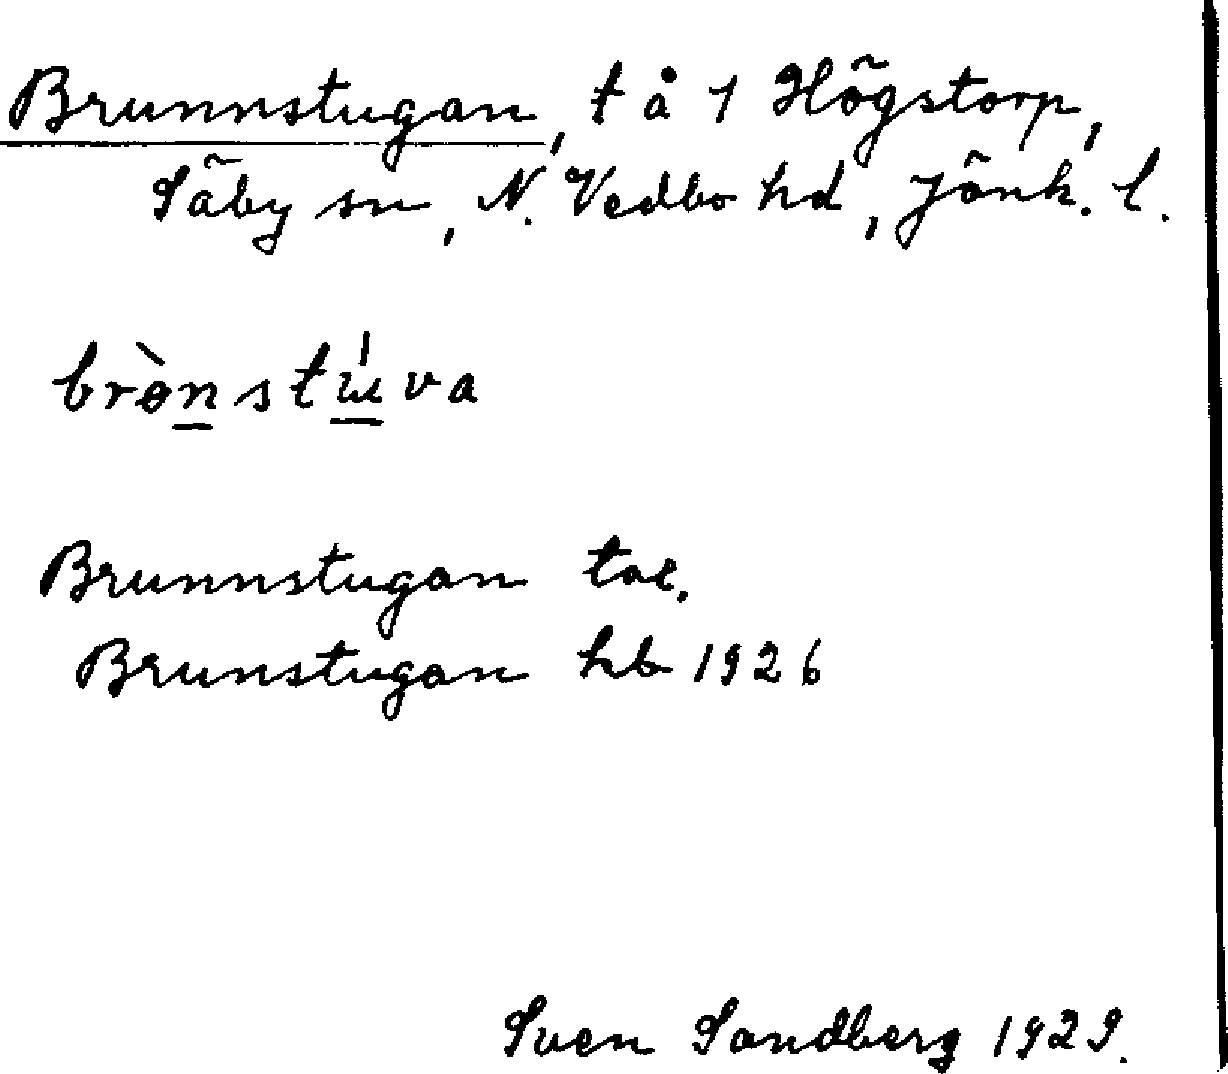 Brunnstugan, t å 1 Högstorp,
Säby sn, N. Vedbo hd, Jönk. l.
brònstúva
Brunnstugan toe.
Brunstugan hb 1926
Sven Sandberg 1929.